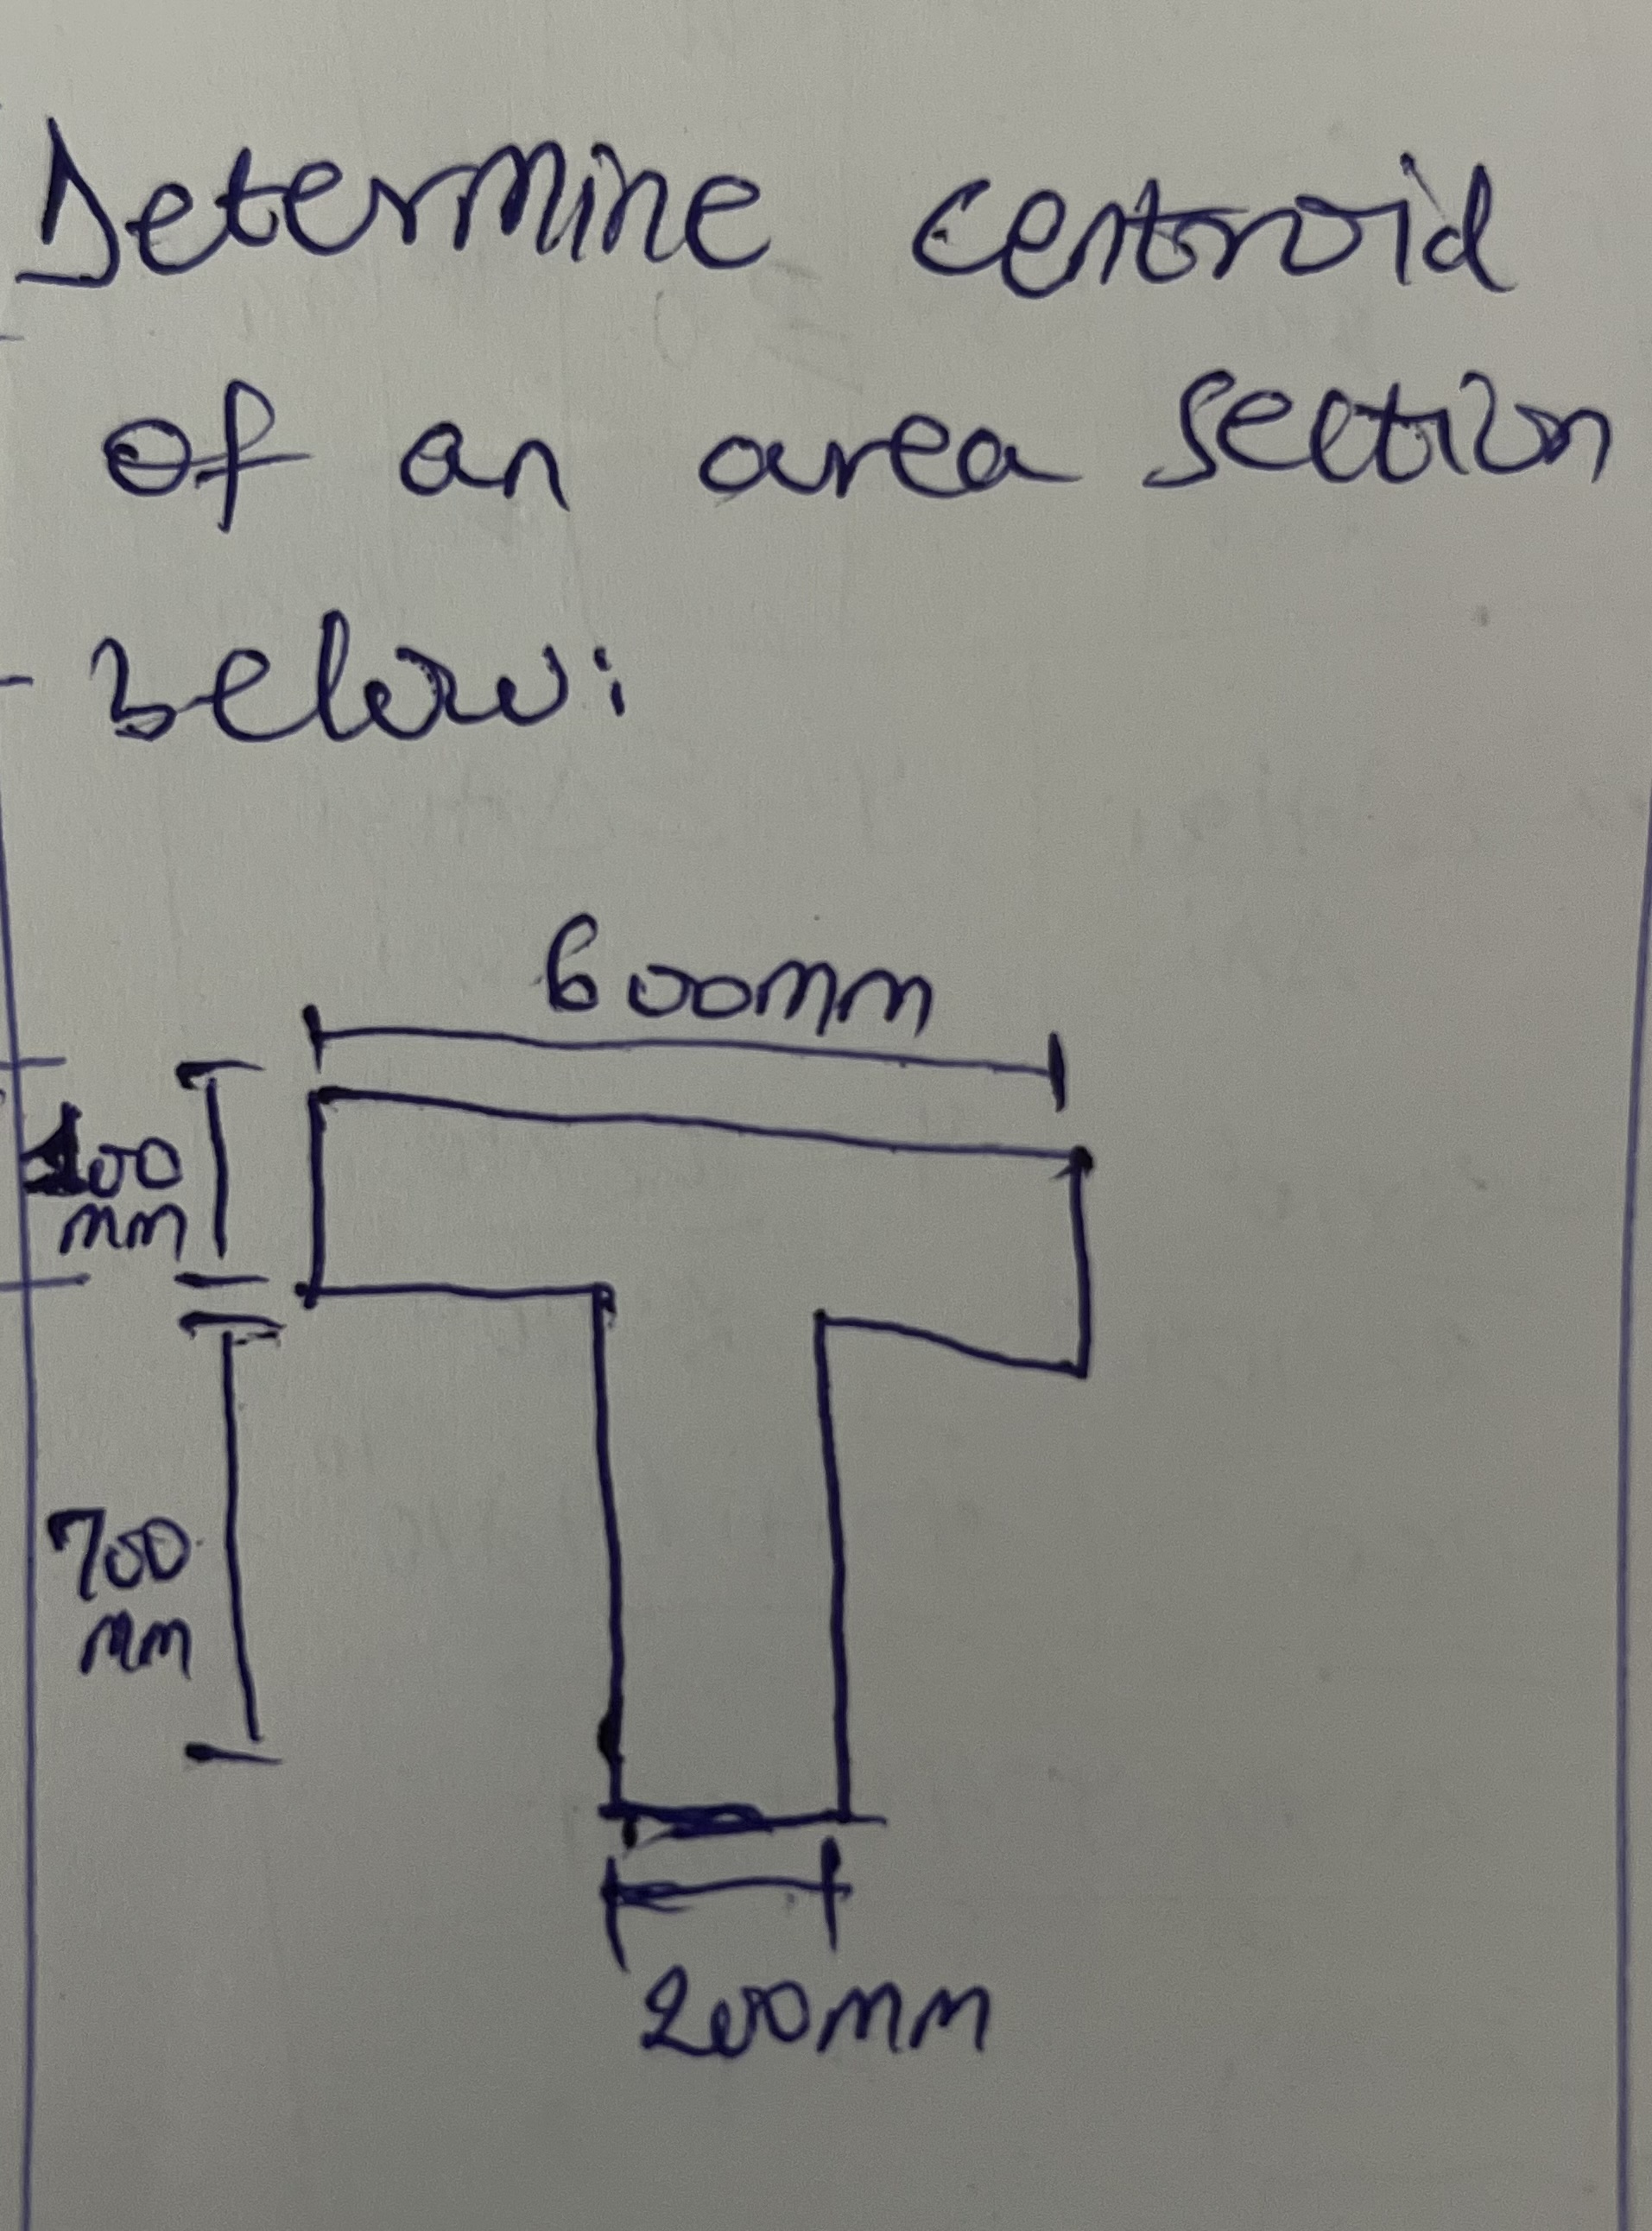 Determine centroid
of an area section
below:
600mm
100
mm
700
mm
200mm